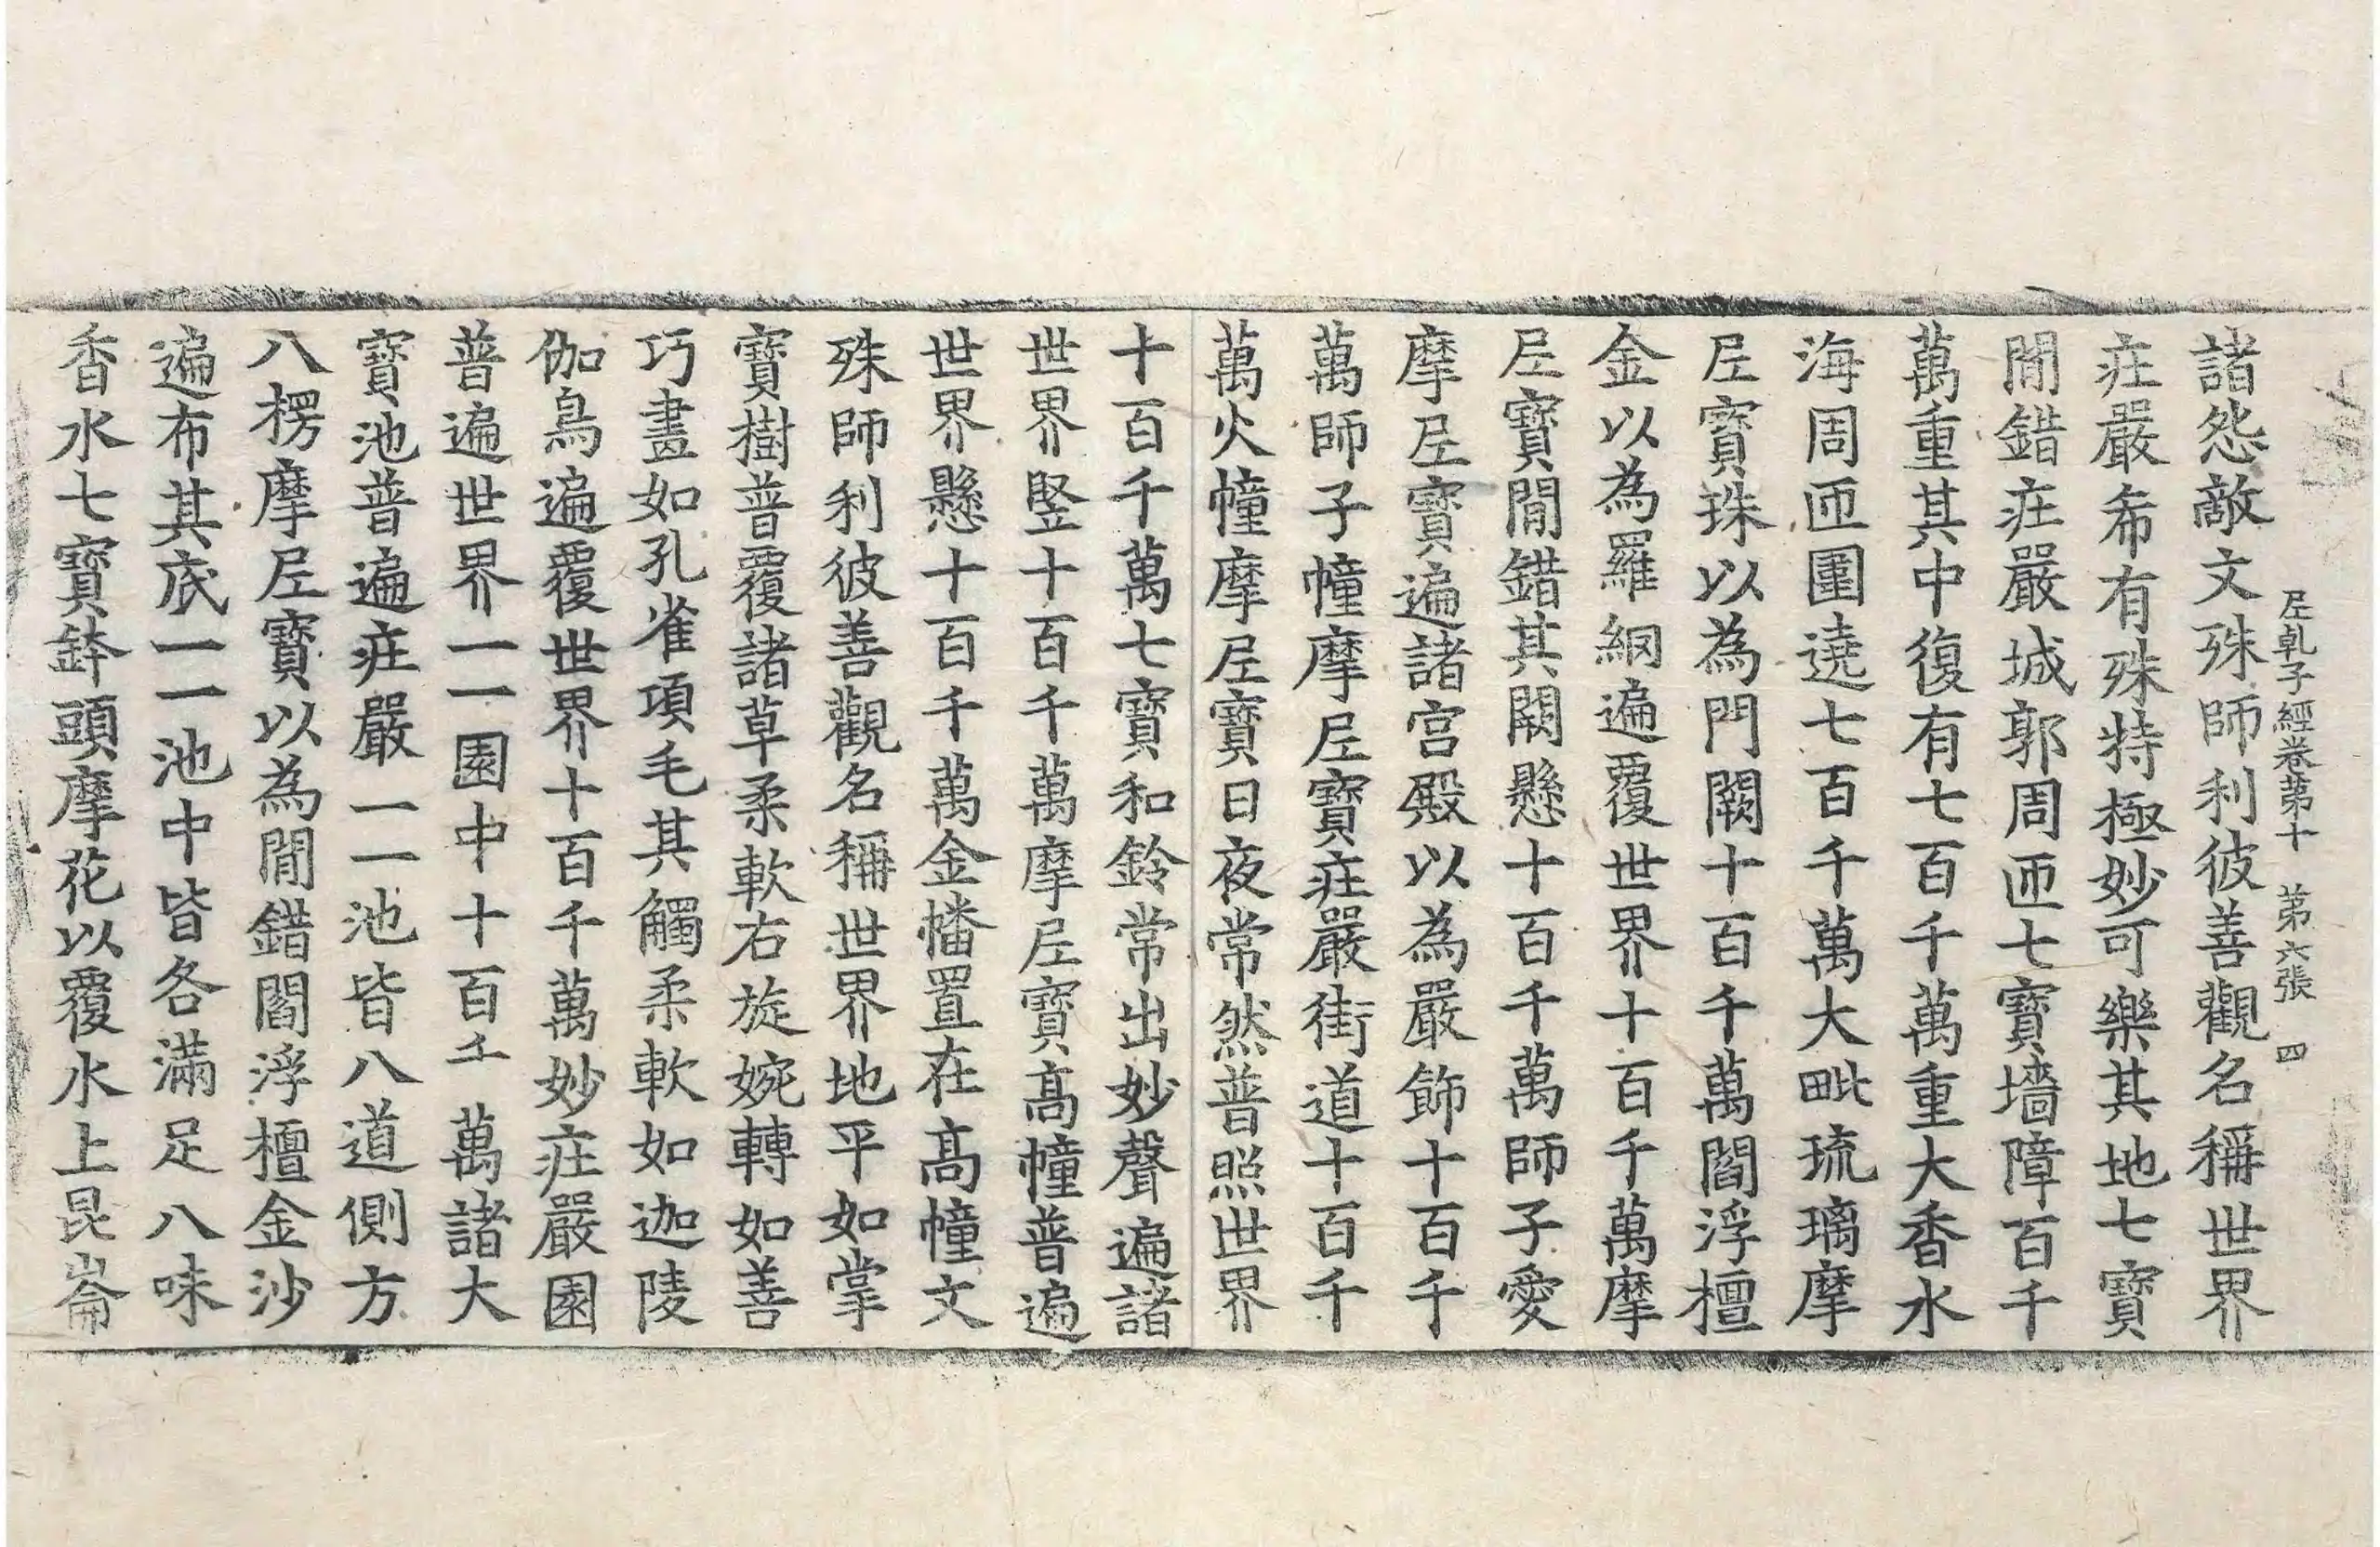 𡰱乹子經卷第十　第六張　四
諸怨敵文殊師利彼善觀名稱世界
疘嚴希有殊特極妙可樂其地七寶
閒錯疘嚴城郭周迊七寶墻障百千
萬重其中復有七百千萬重大香水
海周迊圍遶七百千萬大毗琉璃摩
𡰱寶珠以為門闕十百千萬閻浮檀
金以為羅網遍覆世界十百千萬摩
𡰱寶閒錯其闕懸十百千萬師子愛
摩𡰱寶遍諸宮殿以為嚴飾十百千
萬師子幢摩𡰱寶疘嚴街道十百千
萬火幢摩𡰱寶日夜常然普照世界
十百千萬七寶和鈴常出妙聲遍諸
世界竪十百千萬摩𡰱寶髙幢普遍
世界懸十百千萬金幡置在髙幢文
殊師利彼善觀名稱世界地平如掌
寶樹普覆諸草柔軟右旋婉轉如善
巧畫如孔雀項毛其觸柔軟如迦陵
伽鳥遍覆世界十百千萬妙疘嚴園
普遍世界一一園中十百千萬諸大
寶池普遍疘嚴一一池皆八道側方
八楞摩𡰱寶以為閒錯閻浮檀金沙
遍布其底一一池中皆各滿足八味
香水七寶鉢頭摩花以覆水上昆崙